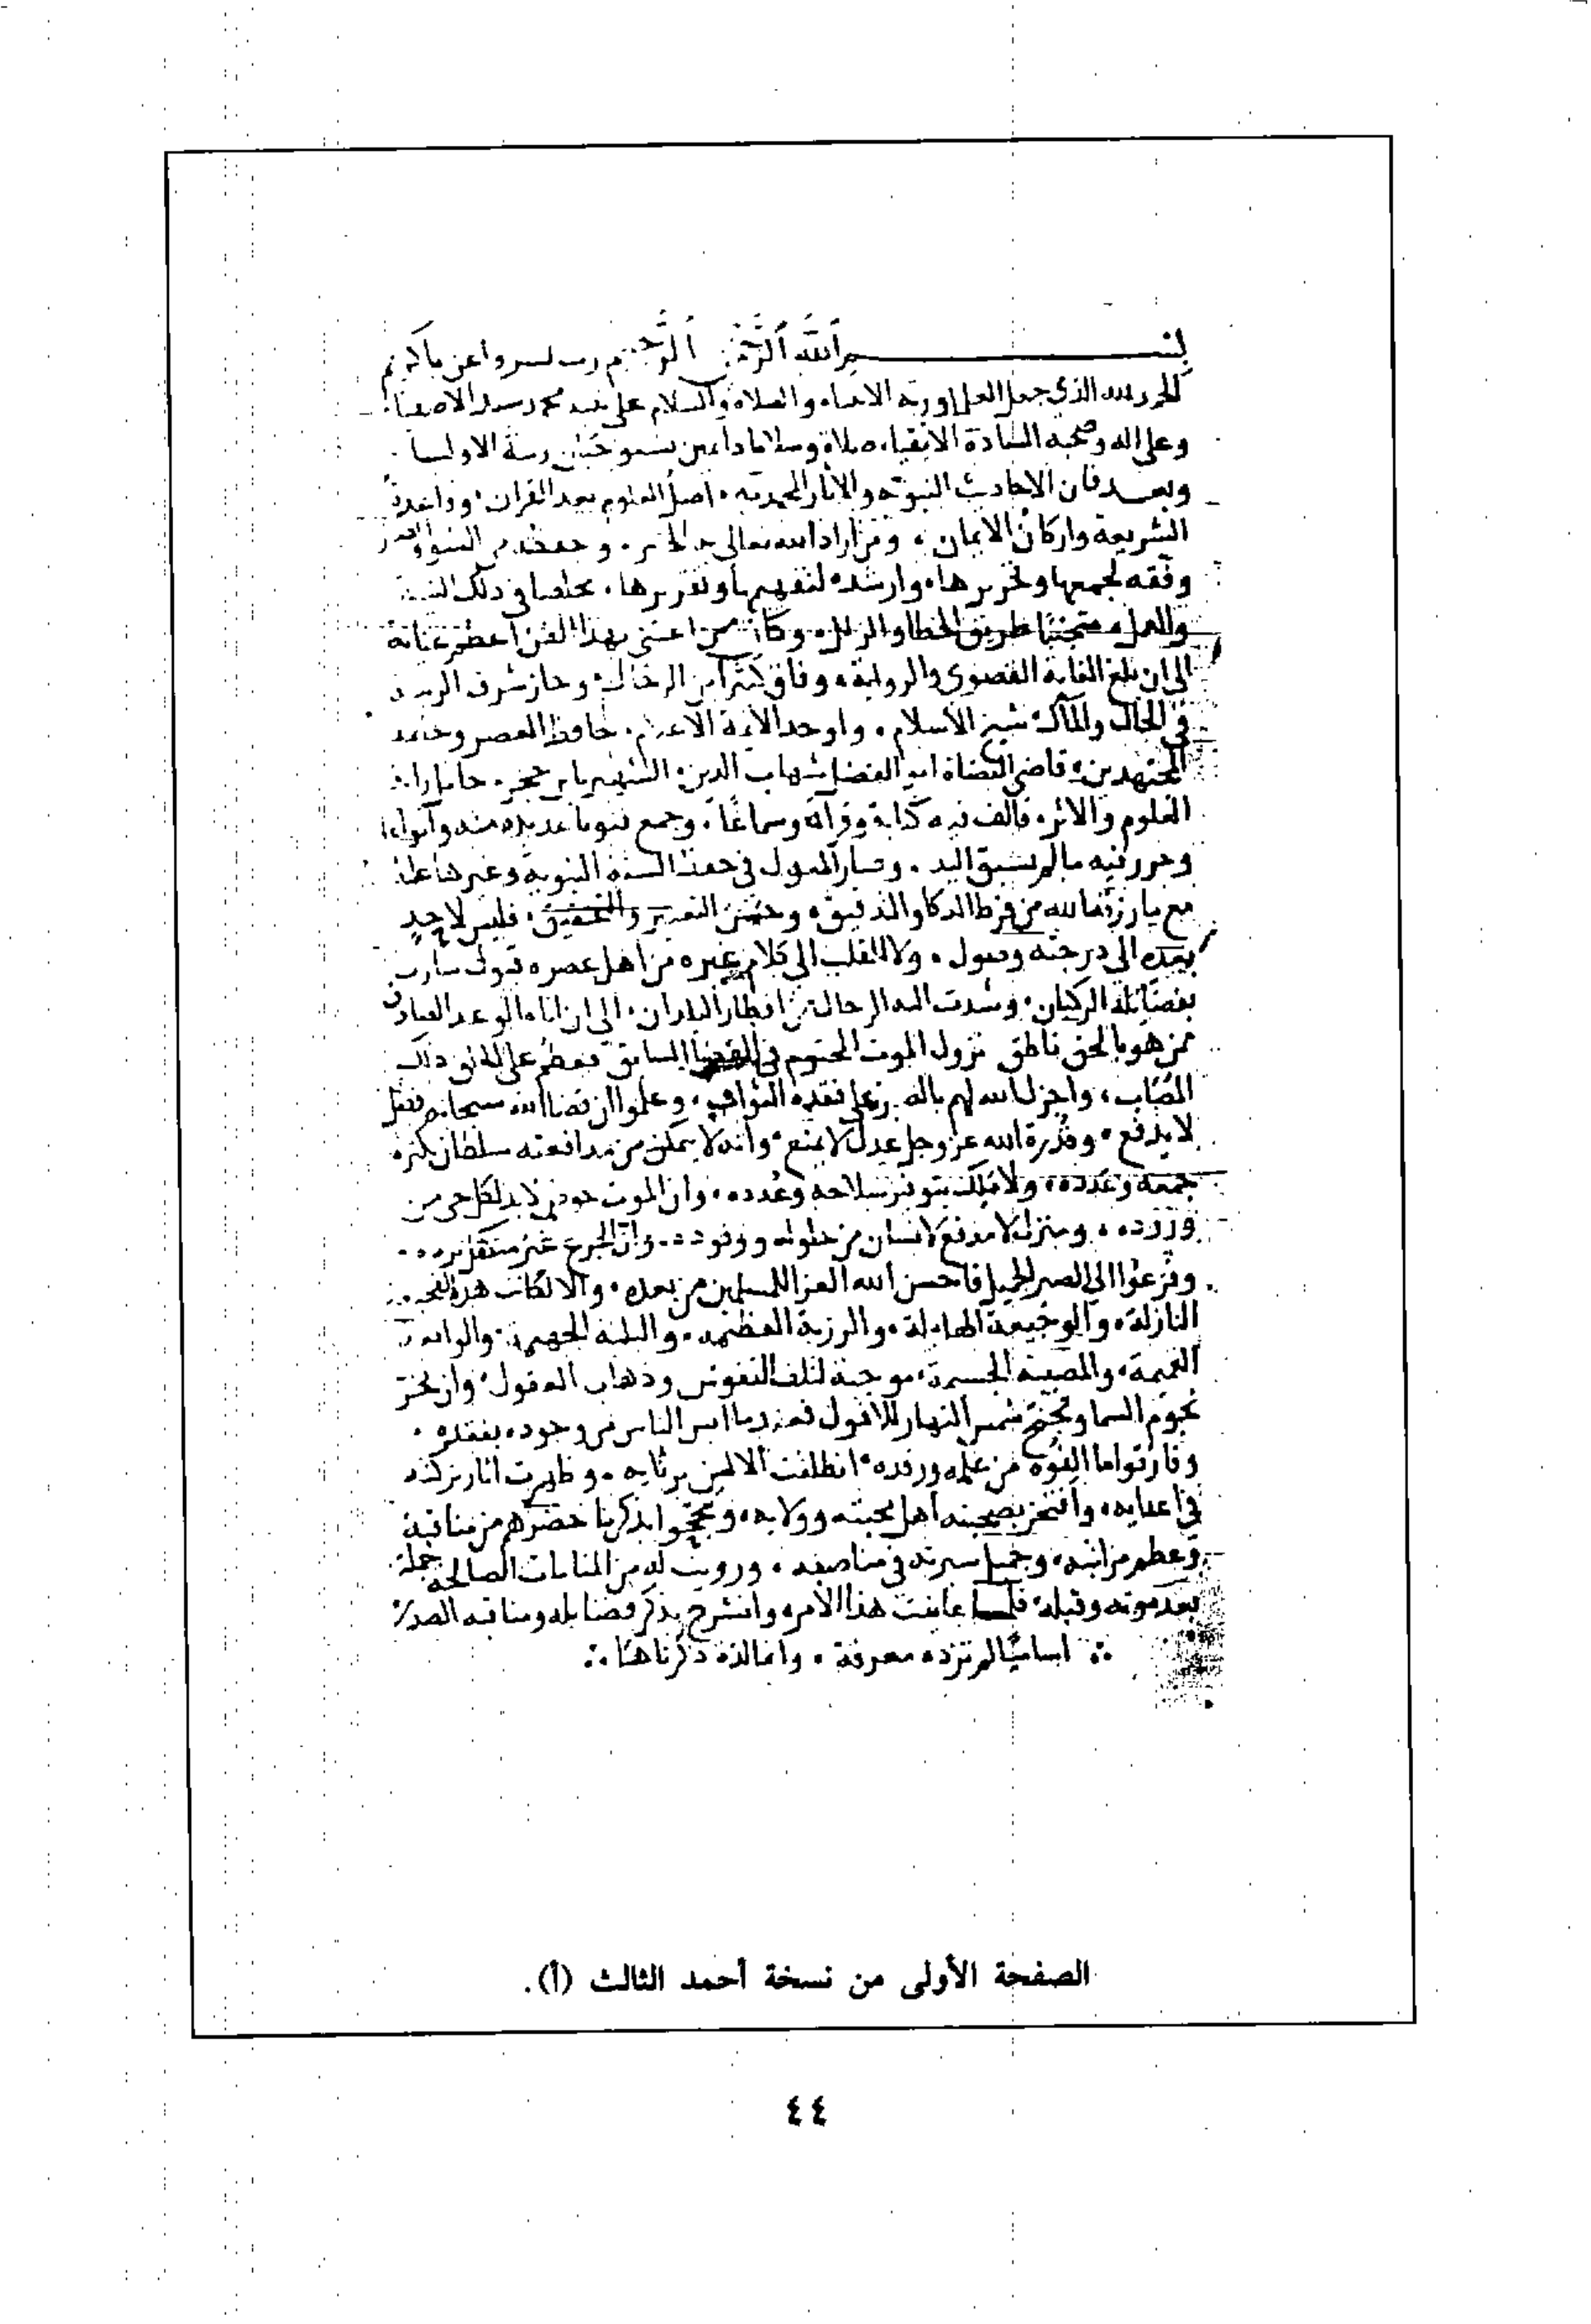 بسم الله الرحمن الرحيم رب يسر واعن يا كريم
الحمد لله الذي جعل العلما ورثة الانبياء والصلاة والسلام على نبيه محمد سيد الاصفيا
وعلى اله وصحبه السادة الاتقياء صلاة وسلاما دائمين رتبة الاوليا
وبعد فان الاحاديث النبوية والاثار المحمدية اصل العلوم بعد القران وقاعدة
الشريعة واركان الايمان ومن اراد الله تعالى به الخير
وفقه لجمعها وتحريرها وارشده لتفهيمها وتقريرها مخلصا في ذلك النية
والعمل متجنبا طريق الخطا والزلل وكان ممن اعتنى بهذا الفن اعظم عناية
الى ان بلغ الغاية القصوى والرواية وفاق كثيرا من الرجال وحاز شرف
في الحال والمآل شيخ الاسلام واوحد الايمة الاعلام حافظ العصر وخاتمة
المجتهدين قاضي القضاة ابو الفضل شهاب الدين الشهير بابن حجر حامل راية
العلوم والاثر فالف فيه كتابة وقراة وسماعا وجمع فنونا عديدة منه وانواعا
وحرر فيه ما لم يسبق اليه وصار المعول في حفظ السنة النبوية وغيرها عليه
مع ما رزقه الله من فرط الذكا والتدقيق وحسن التعبير والتحقيق فليس لاحد
بعده الى درجته وصول ولا للقلب الى كلام غيره من اهل عصره قبول سارت
بفضائله الركبان وشدت اليه الرحال من اقطار البلدان الى ان اتاه الوعد الصادق
ممن هو بالحق ناطق نزول الموت المحتوم في القضا السابق فعظم على ذلك
المصاب واجزل الله لهم على فقده الثواب وعلموا ان قضا الله سبحانه فصل
لا يدفع وقدرة الله عز وجل عدل لا يمنع وانه لا يمكن من مدافعته سلطان بكثرة
جمعه وعدده ولا ملك بتوفر سلاحه وعدده وان الموت حوض لا بد لكل حي من
وروده ومنزل لا مدفع لانسان من حلوله ووفوده وان الجزع غير
وفزعوا الى الصبر الجميل فاحسن الله العزا للمسلمين من بعده والا لكانت هذه
النازلة والوجيعة الهايلة والرزية العظيمة والبلية الجهيمة
العميمة والمصيبة الجسيمة موجبة لتلف النفوس وذهاب العقول وان تخر
نجوم السما وتجنح شمس النهار للافول فعندما ايس الناس من وجوده بفقده
وفارقوا ما الفوه من علمه ورفده انطلقت الالسن برثايه وظهرت اثار بركته
في اعدايه وافتخر بصحبته اهل محبته وولايه بذكر ما حضرهم من مناقبه
وعظم مراتبه وجميل سيرته في مناصبه ورويت له من المنامات الصالحة جملة
بعد موته وقبله فلما عاينت هذا الامر وانشرح بذكر فضايله ومناقبه الصدر
اساميا لم تزده معرفة وانما لذة ذكرناها
الصفحة الأولى من نسخة أحمد الثالث (أ).
٤٤